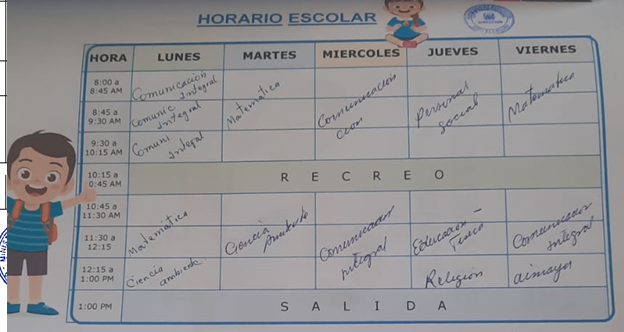 HORARIO ESCOLAR
HORA LUNES MARTES MIERCOLES JUEVES VIERNES
8:00 a
8:45 AM
Comunicación
Integral
8:45 a
9:30 AM
Comunic
Integral
Matemática
Comunicación
Personal
Social
Matemática
9:30 a
10:15 AM
Comuni
Integral
10:15 a
0:45 AM
RECREO
10:45 a
11:30 AM
Matemática
11:30 a
12:15
Ciencia
Comunicación
Integral
Educación -
Física
Comunicación
Integral
12:15 a
1:00 PM
Ciencia
ambiente
Religión
aimara
1:00 PM
SALIDA